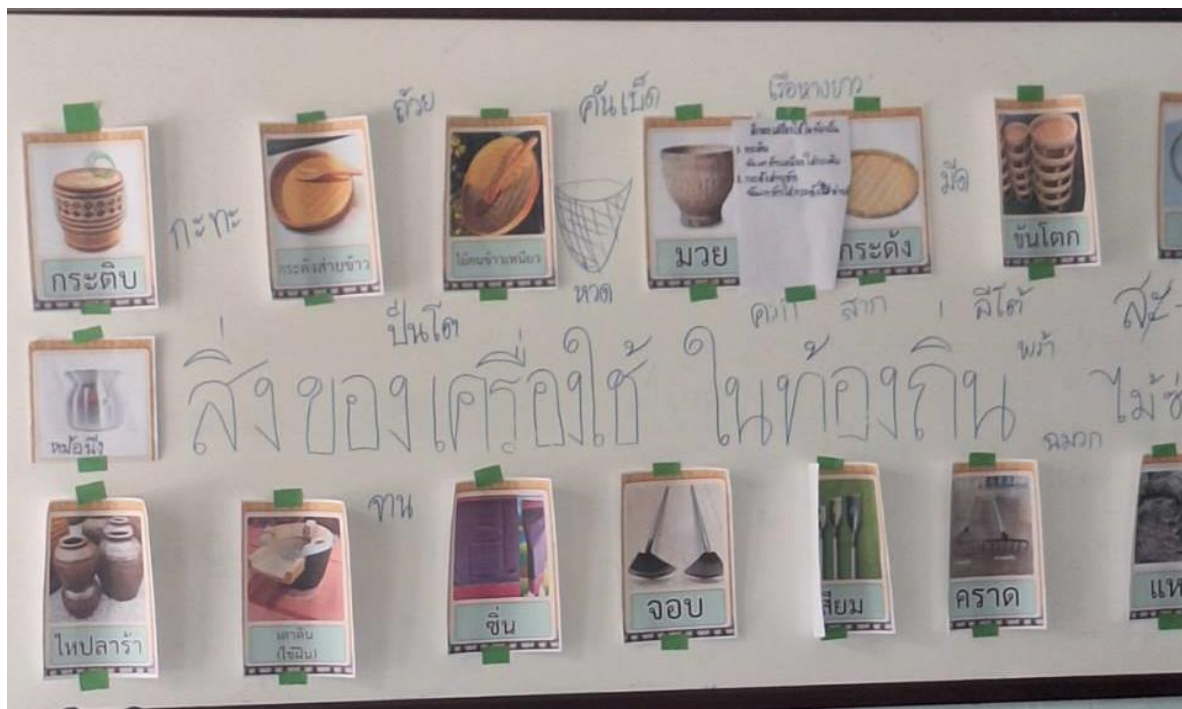 ถ้วย
คันเบ็ด
เรือหางยาว
กระติบ
กะทะ
กระด้งส่ายข้าว
ไม้คนข้าวเหนียว
มวย
กระด้ง
มีด
ขันโตก
ปิ่นโต
หวด
สาก
อีโต้
พร้า
สิ่งของเครื่องใช้ ในท้องถิ่น
หม้อนึ่ง
ฉมวก
จาน
ไหปลาร้า
เตาดิน
(ใช้ฟืน)
ซิ่น
จอบ
เสียม
คราด